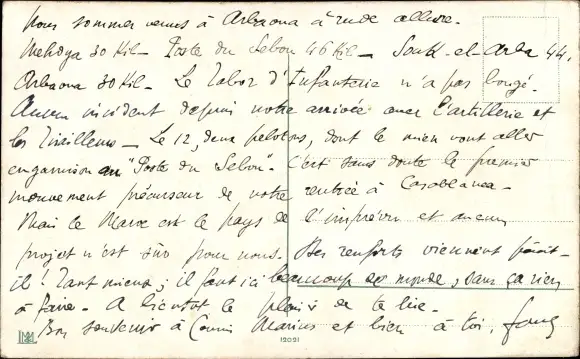 Nous sommes venus à Arbaoua à rude allure.
Mehdya 30 Kil - Poste du Sebou 46 Kil - Soukk-el-Arba 44,
Arbaoua 30 Kil - Le Tabor d'Infanterie n'a pas bougé.
Aucun incident depuis notre arrivée avec l'artillerie et
les Tirailleurs - Le 12, deux pelotons, dont le mien vont aller
en garnison au "Poste du Sebou". C'est sans doute le premier
mouvement précurseur de notre rentrée à Casablanca -
Mais le Maroc est le pays de l'imprévu et aucun
projet n'est sûr pour nous. Des renforts viennent paraît-
il! Tant mieux; il faut ici beaucoup de monde, sans ça rien
à faire. A bientôt le plaisir de te lire.
Bon souvenir à Marius et bien à toi,
12021